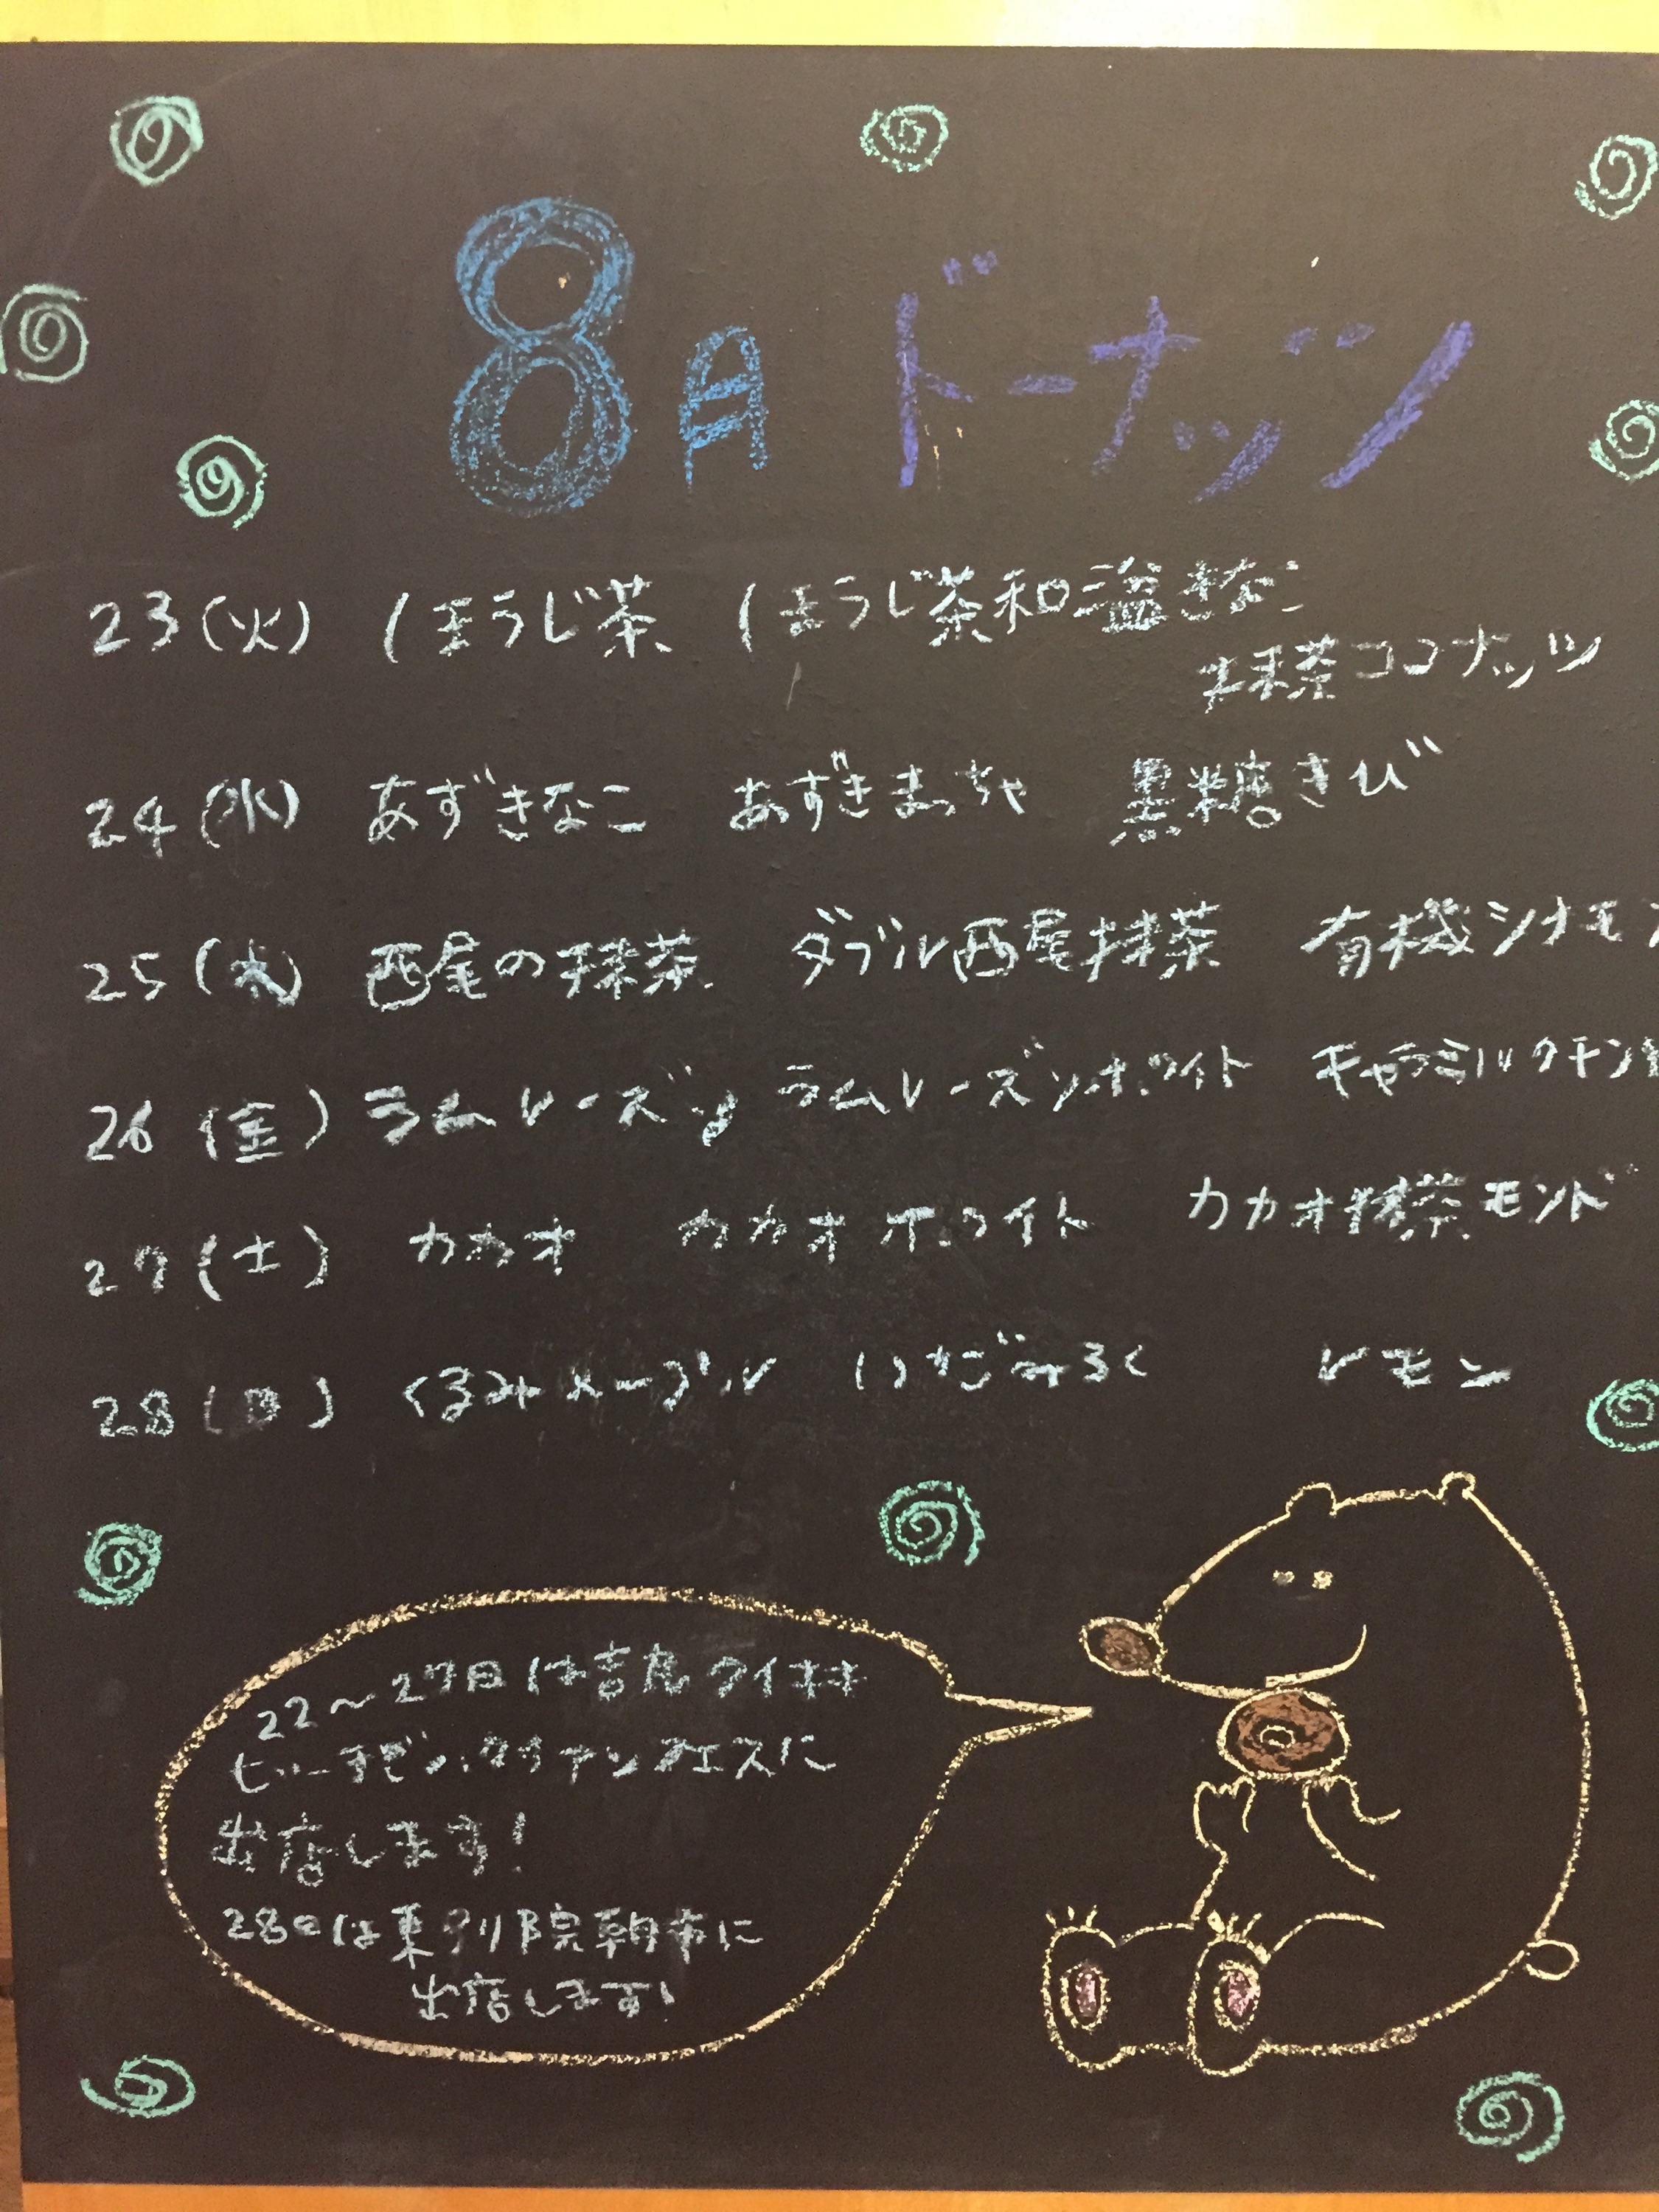 8月 ドーナッツ
23(火) ほうじ茶 ほうじ茶和 きなこ
抹茶ココナッツ
24(水) あずきなこ あずきまっちゃ 黒糖きび
25(木) 西尾の抹茶 ダブル西尾抹茶 有機シナモン
26(金) ラムレーズン ラムレーズンホワイト キャラミルク
27(土) カカオ カカオホワイト カカオ抹茶モンド
28(日) くるみメープル いちごみるく レモン
22〜27日は吉良ワイキキ
ビーチ ハワイアンフェスに
出店します!
28日は東別院朝市に
出店します!